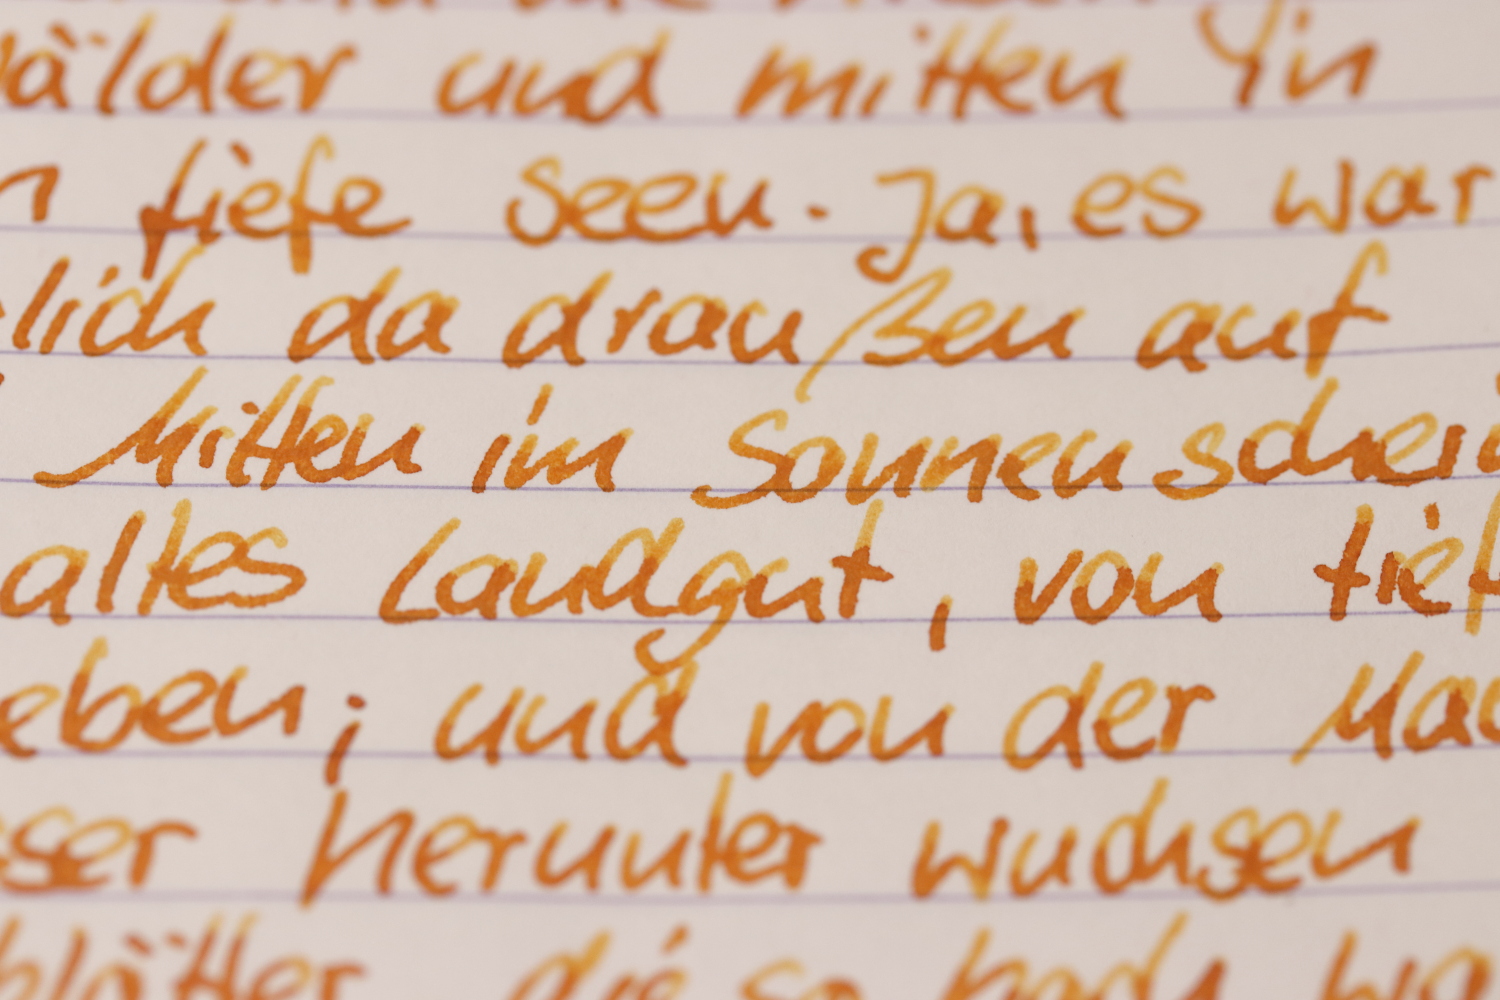 und die Wiesen
älder und mitten in
n tiefe Seen. Ja, es war
lich da draußen auf
Mitten im Sonnenschein
altes Landgut, von tief
eben; und von der Mau
sser herunter wuchsen
blätter, die so hoch wa